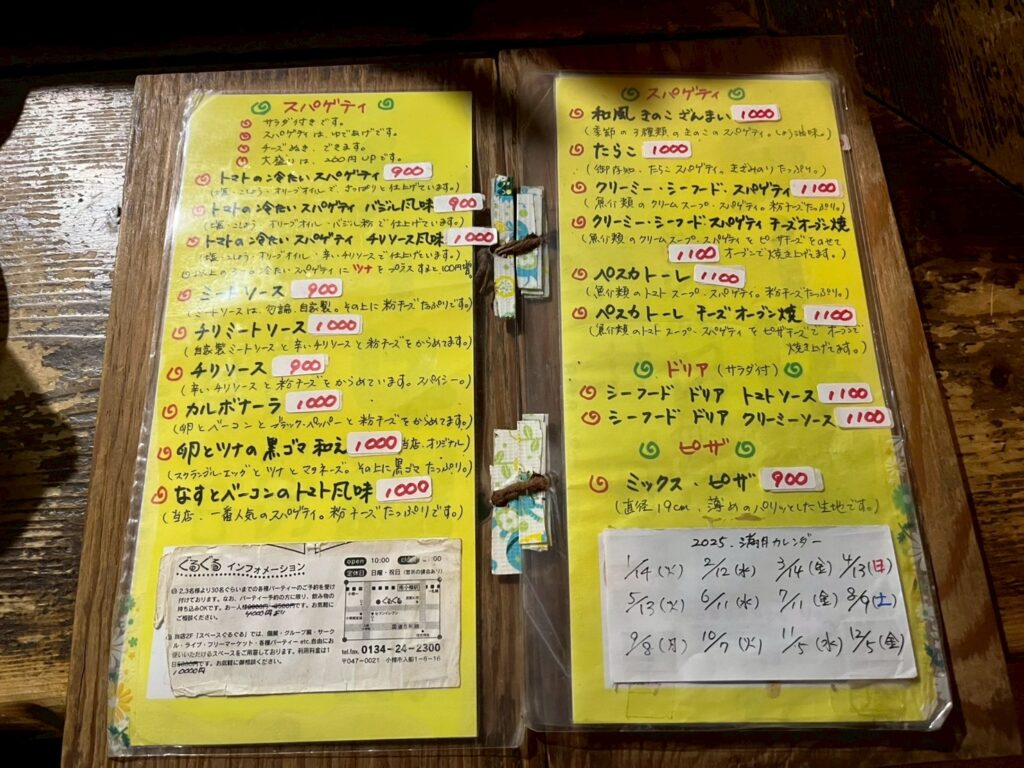 スパゲティ
サラダ付きです。
スパゲティは、ゆであげです。
チーズぬき、できます。
大盛りは、200円UPです。
トマトの冷たい スパゲティ 900
(塩・こしょう・オリーブオイルで、さっぱりと仕上げています。)
トマトの冷たい スパゲティ バジル風味 900
(塩・こしょう・オリーブオイル・バジル粉で仕上げています。)
トマトの冷たい スパゲティ チリソース風味 1000
(塩・こしょう・オリーブオイル・辛いチリソースで仕上げています。)
以上の3つの冷たいスパゲティにツナをプラスすると100円増
ミートソース 900
(ミートソースは、勿論、自家製。その上に粉チーズたっぷりです。)
チリミートソース 1000
(自家製ミートソースと辛いチリソースと粉チーズをからめてます。)
チリソース 900
(辛いチリソースと粉チーズをからめています。スパイシー。)
カルボナーラ 1000
(卵とベーコンとブラックペッパーと粉チーズをからめてます。)
卵とツナの黒ゴマ和え 1000 (当店、オリジナル)
(スクランブルエッグとツナとマヨネーズ。その上に黒ゴマたっぷり。)
なすとベーコンのトマト風味 1000
(当店、一番人気のスパゲティ。粉チーズたっぷりです。)
ぐるぐる インフォメーション
2,3名様より30名ぐらいまでの各種パーティーのご予約を受け
付けております。なお、パーティー予約の方に限り、飲み物の
持ち込みOKです。お一人様
4000円より
ご相談ください。
当店2F「スペースぐるぐる」では、個展・グループ展・サーク
ル・ライブ・フリーマーケット・各種パーティー etc.自由にお
使いいただけるスペースをご用意しております。利用料金は1
日
です。お気軽にご相談ください。
10000円
open 10:00
定休日 日曜・祝日
ぐるぐる
国道5号線
tel.fax. 0134-24-2300
〒047-0021 小樽市入船1-6-16
スパゲティ
和風きのこざんまい 1000
(季節の3種類のきのこのスパゲティ。しょう油味。)
たらこ 1000
(御存知、たらこスパゲティ。きざみのりたっぷり。)
クリーミー・シーフード・スパゲティ 1100
(魚介類のクリームスープ・スパゲティ。粉チーズたっぷり。)
クリーミー・シーフード スパゲティ チーズオーブン焼
(魚介類のクリームスープ・スパゲティとピザチーズをのせて
1100 オーブンで焼き上げます。)
ペスカトーレ 1100
(魚介類のトマトスープ・スパゲティ。粉チーズたっぷり。)
ペスカトーレ チーズオーブン焼 1100
(魚介類のトマトスープ・スパゲティをピザチーズでオーブンで
焼き上げてます。)
ドリア (サラダ付)
シーフード ドリア トマトソース 1100
シーフード ドリア クリーミーソース 1100
ピザ
ミックス・ピザ 900
(直径19cm、薄めのパリッとした生地です。)
2025. 満月カレンダー
1/14(火) 2/12(水) 3/14(金) 4/13(日)
5/13(火) 6/11(水) 7/11(金) 8/9(土)
9/8(月) 10/7(火) 11/5(水) 12/5(金)